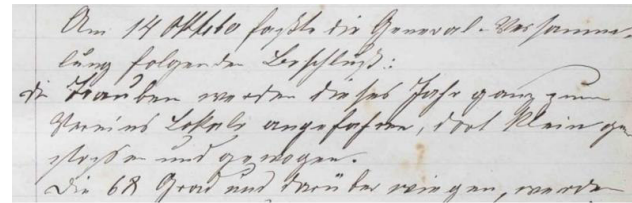 Am 14 Oktober faßte die General-Versamm-
lung folgenden Beschluß:
die Trauben werden dieses Jahr ganz zum
Vereins Lokale angefahren, dort klein ge
stoßen und gewogen.
Die 68 Grad und darüber wiegen, werden